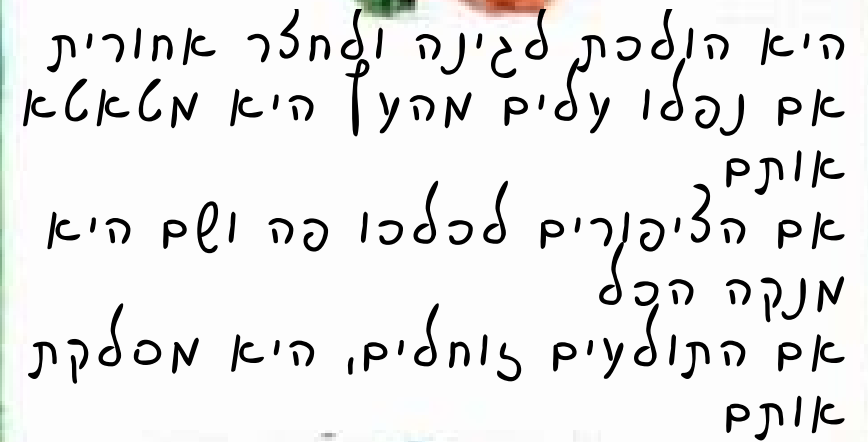 היא הולכת לגינה ולחצר אחורית
אם נפלו עלים מהעץ היא מטאטא
אותם
אם הציפורים לכלכו פה ושם היא
מנקה הכל
אם התולעים זוחלים, היא מסלקת
אותם